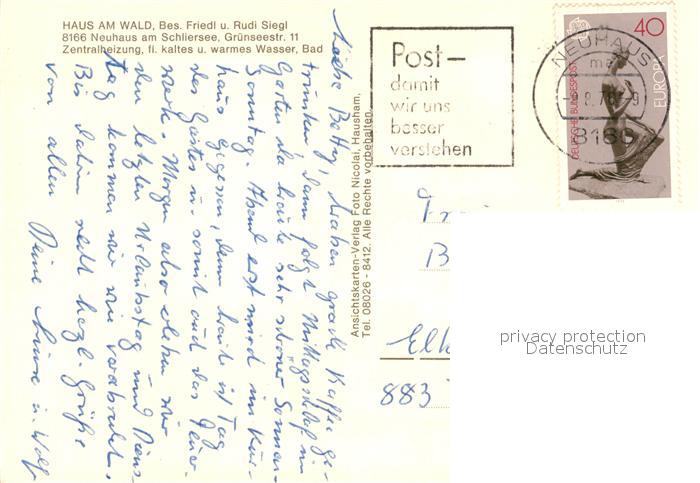 HAUS AM WALD, Bes. Friedl u. Rudi Siegl
8166 Neuhaus am Schliersee, Grünseestr. 11
Zentralheizung, fl. kaltes u. warmes Wasser, Bad
Liebe Betty, haben grade Kaffee ge-
trunken, dann folgt Mittagschlaf im
Garten da heute sehr schöner Sonnen-
Sonntag. Abend erst wird im Kur-
haus gegessen, denn heute ist Tag
des Gastes u. somit auch das Feuer-
werk. Morgen also erleben wir
den letzten Urlaubstag und Diens-
tag kommen wir wie verabredet.
Bis dahin recht herzl. Grüße
von allen Deine Luise u. Wolf
Ansichtskarten-Verlag Foto Nicolai, Hausham,
Tel. 08026 - 8412. Alle Rechte vorbehalten.
Post–
damit
wir uns
besser
verstehen
NEUHAUS
8166
40
EUROPA
DEUTSCHE BUNDESPOST
B
Elk
883
privacy protection
Datenschutz